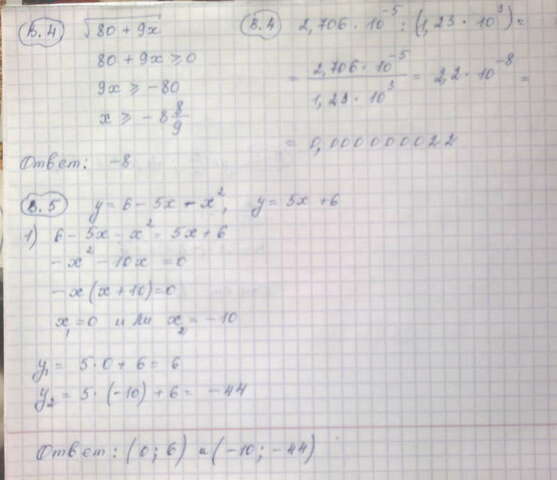 В.4 √80 + 9x
80 + 9x ≥ 0
9x ≥ -80
x ≥ -8 8/9
Ответ: -8
В.4 2,706 · 10^-5 : (1,23 · 10^3) =
= 2,706 · 10^-5 / 1,23 · 10^3 = 2,2 · 10^-8 =
= 0,000000022
В.5 y = 6 - 5x - x^2, y = 5x + 6
1) 6 - 5x - x^2 = 5x + 6
-x^2 - 10x = 0
-x(x + 10) = 0
x₁ = 0 или x₂ = -10
y₁ = 5 · 0 + 6 = 6
y₂ = 5 · (-10) + 6 = -44
Ответ: (0; 6) и (-10; -44)